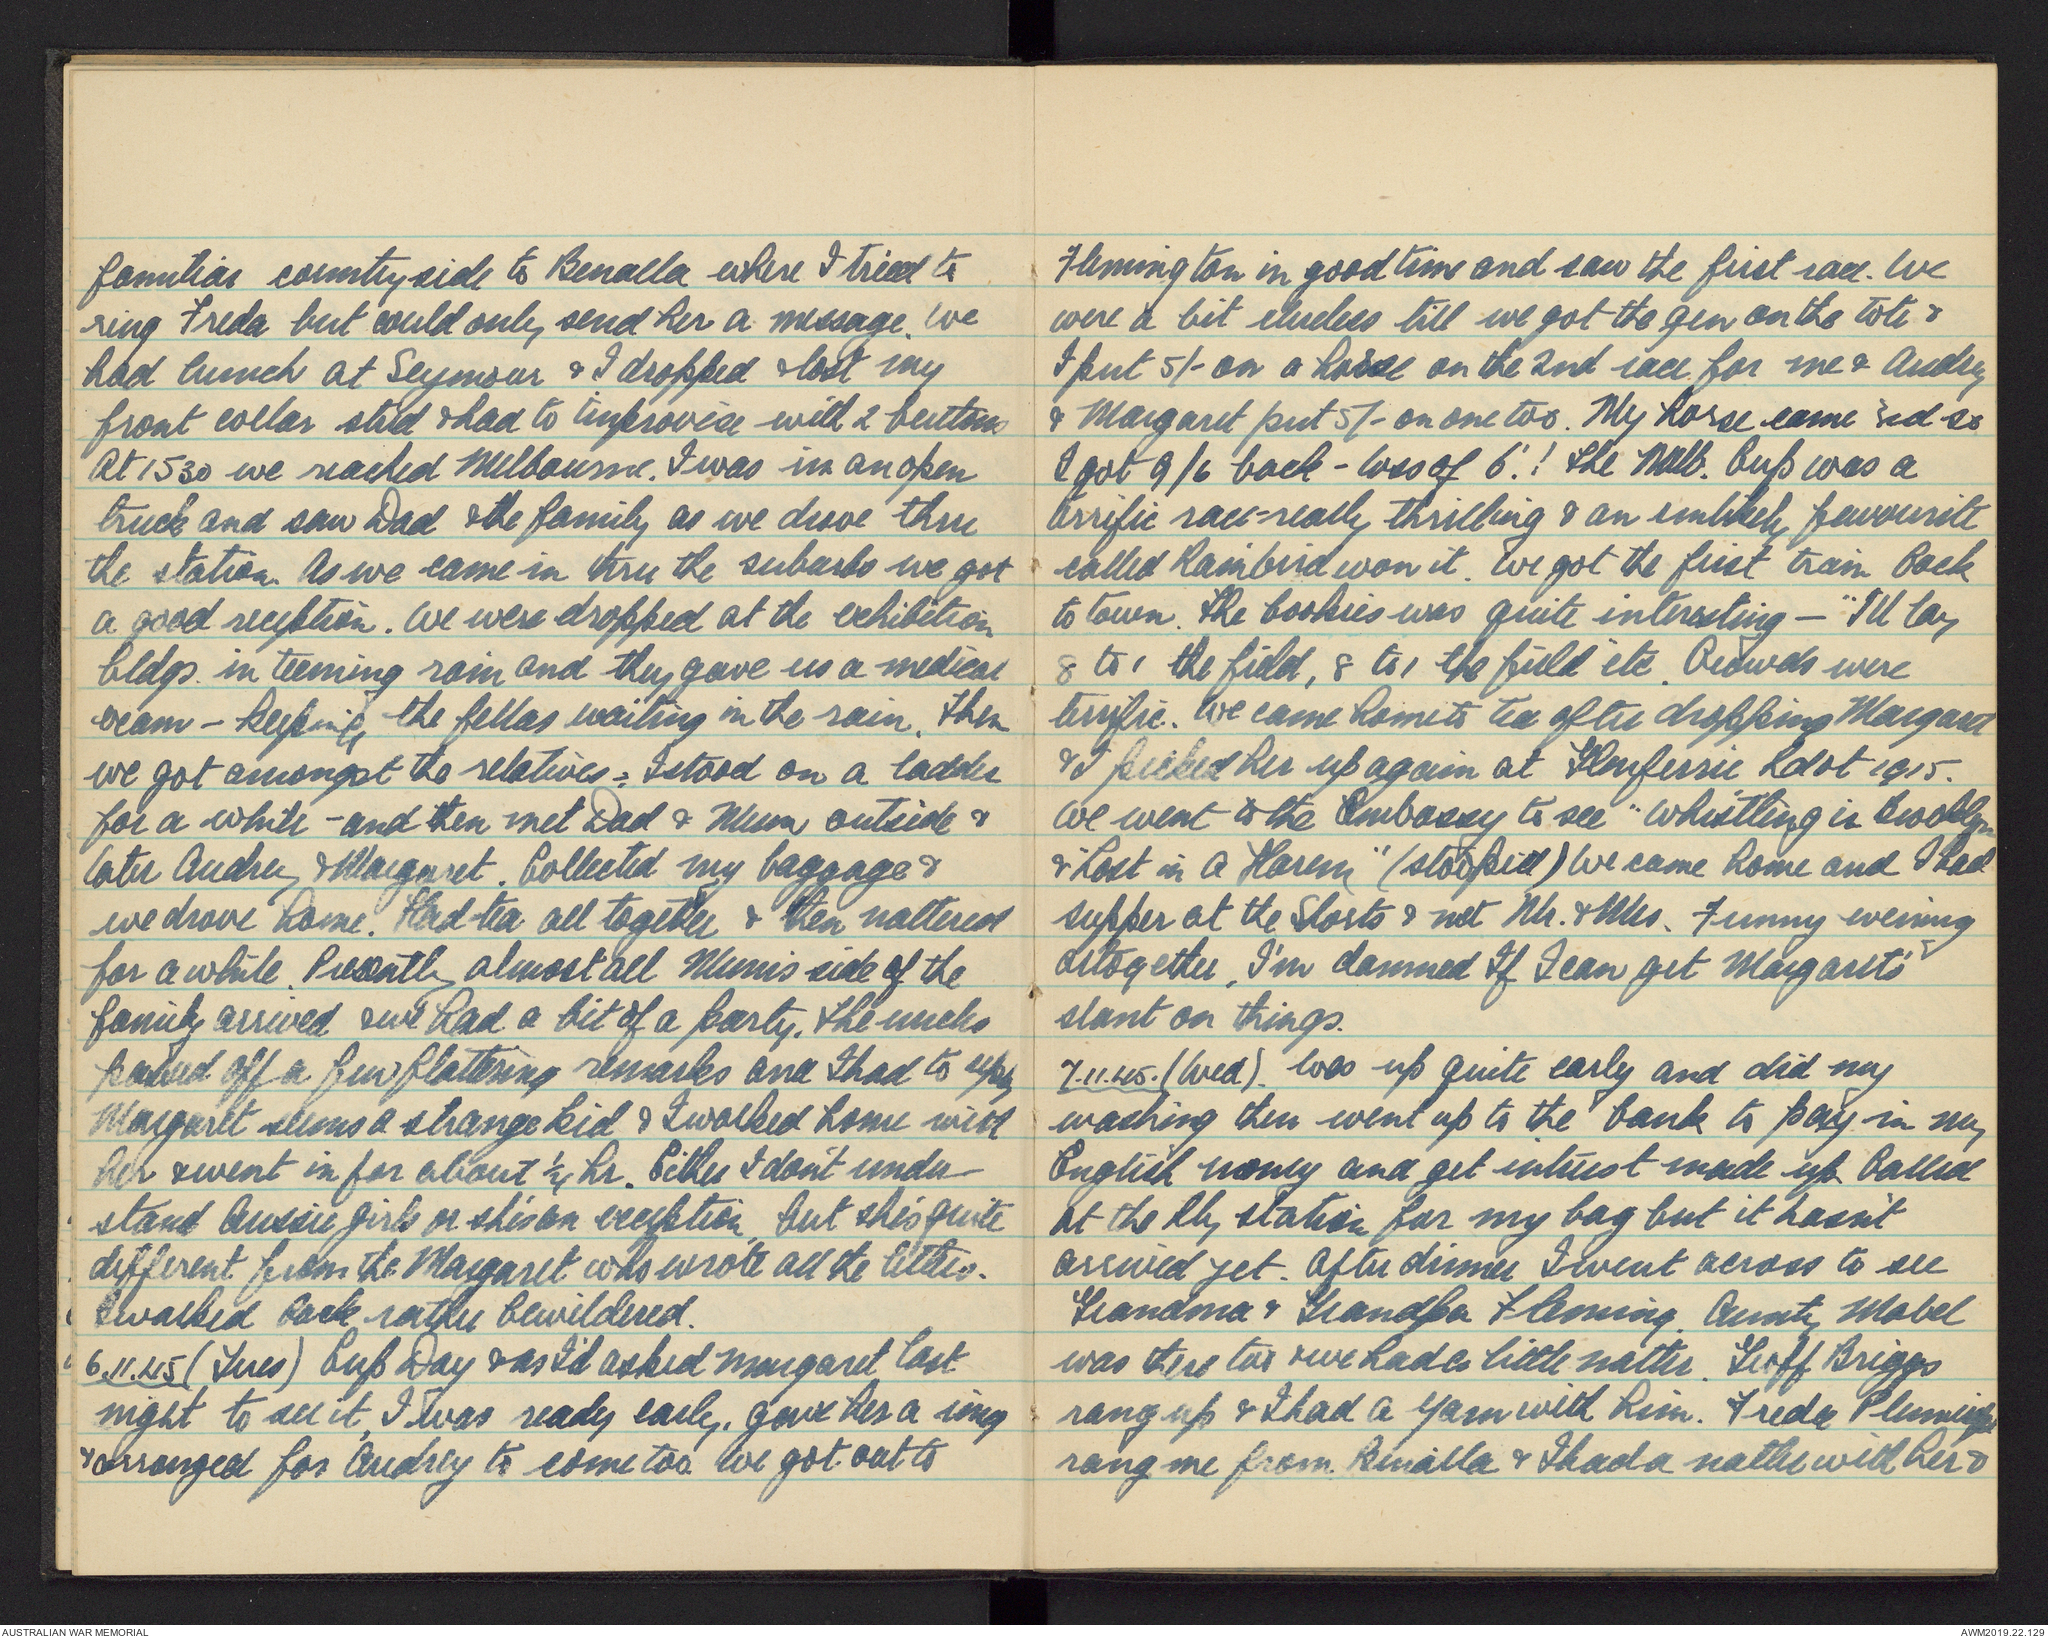 familiar countryside to Benalla where I tried to
ring Freda but could only send her a message. We
had lunch at Seymour & I dropped & lost my
front collar stud & had to improvise with 2 buttons
At 1530 we reached Melbourne. I was in an open
truck and saw Dad & the family as we drove thru
the station. As we came in thru the suburbs we got
a good reception. We were dropped at the exhibition
bldgs. in teeming rain and they gave us a medical
exam - keeping the fellas waiting in the rain. Then
we got amongst the relatives - I stood on a ladder
for a while - and then met Dad & Mum outside &
later Audrey & Margaret. Collected my baggage &
we drove home. Had tea all together & then nattered
for a while. Presently almost all Mum's side of the
family arrived & we had a bit of a party. The uncles
passed off a few flattering remarks and I had to reply
Margaret seems a strange kid & I walked home with
her & went in for about ½ hr. Either I don't under-
stand Aussie girls or she's an exception, but she's quite
different from the Margaret who wrote all the letters.
I walked back rather bewildered.
6.11.45 (Tues) Cup Day & as I'd asked Margaret last
night to see it, I was ready early, gave her a ring
& arranged for Audrey to come too. We got out to
Flemington in good time and saw the first race. We
were a bit clueless till we got the gen on the tote &
I put 5/- on a horse on the 2nd race for me & Audrey
& Margaret put 5/- on one too. My horse came 3rd so
I got 9/6 back - loss of 6'.! The Melb. Cup was a
terrific race - really thrilling & an unlikely favourite
called Rainbird won it. We got the first train back
to town. The bookies was quite interesting - "I'll lay
8 to 1 the field, 8 to 1 the field etc. Crowds were
terrific. We came home to tea after dropping Margaret
& I picked her up again at Glenferrie Rd at 1915.
We went to the Embassy to see "Whistling in Brooklyn
& "Lost in a Harem" (stoopid) We came home and I had
supper at the Shorts & met Mr. & Mrs. Funny evening
altogether, I'm damned If I can get Margaret's
slant on things.
7.11.45. (Wed). Was up quite early and did my
washing then went up to the bank to pay in my
English money and get interest made up. Called
at the Rly station for my bag but it hasn't
arrived yet. After dinner I went across to see
Grandma & Grandpa Fleming. Aunty Mabel
was there too & we had a little natter. Geoff Briggs
rang up & I had a yarn with him. Freda
rang me from Benalla & I had a natter with her &
AUSTRALIAN WAR MEMORIAL
AWM2019.22.129